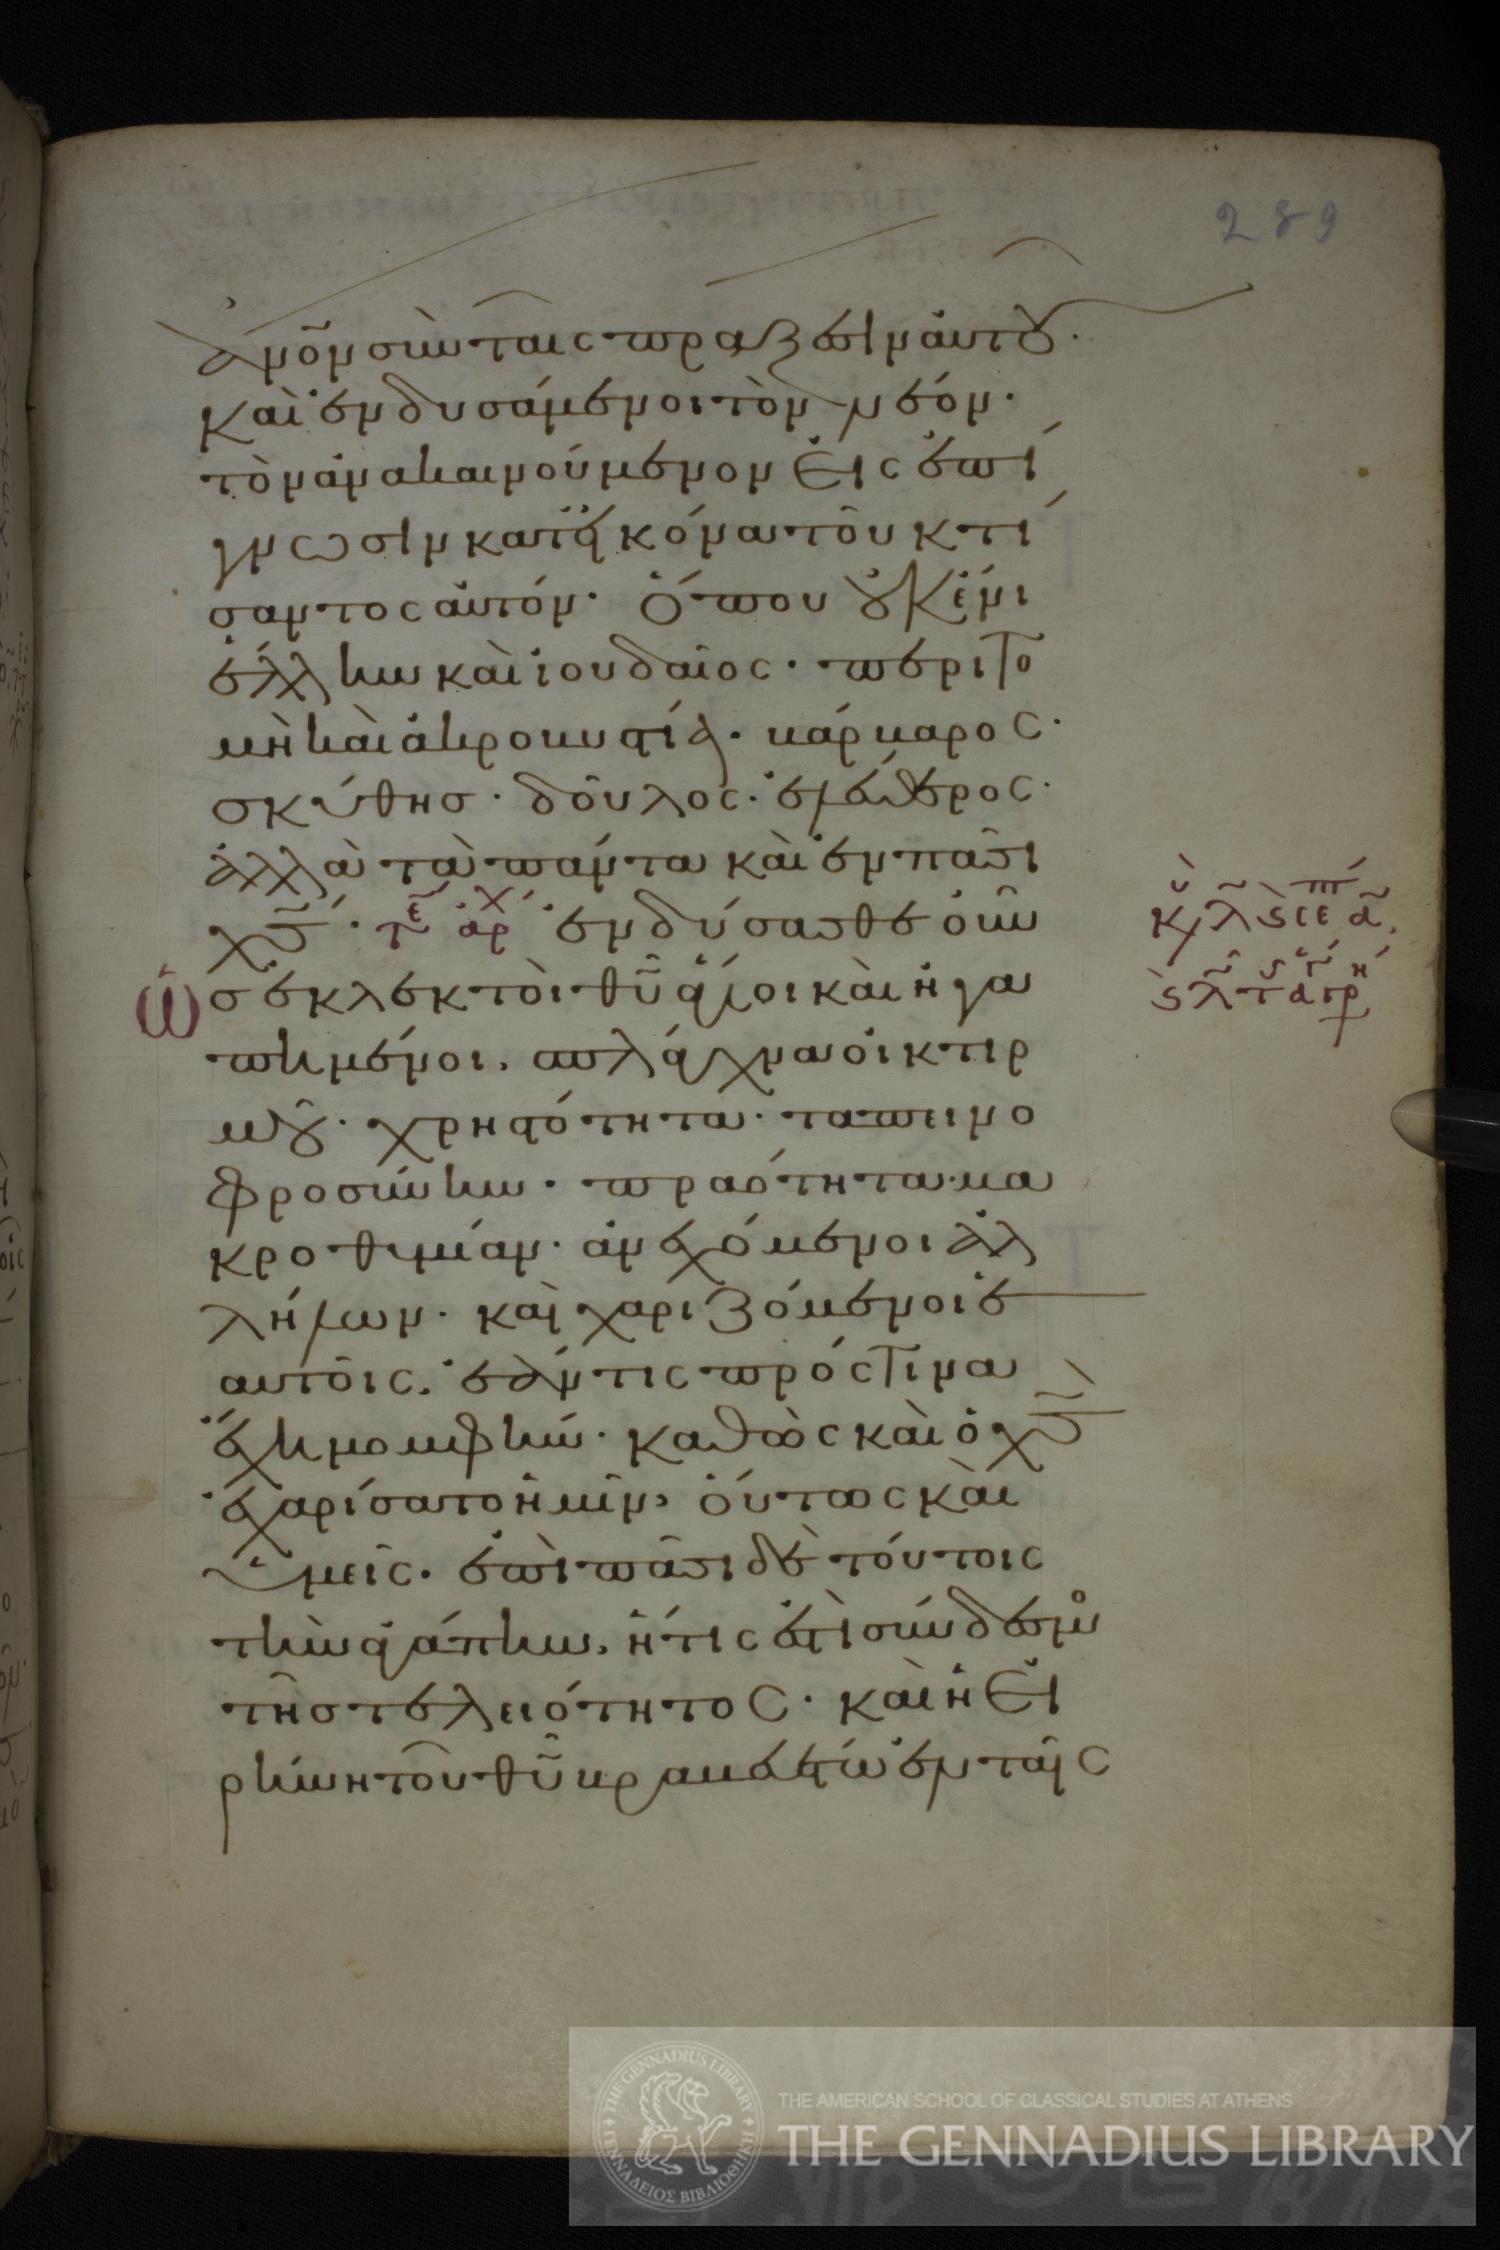 289
ἄνον σὺν ταῖς πράξεσιν αὐτοῦ·
καὶ ἐνδυσάμενοι τὸν νέον·
τὸν ἀνακαινούμενον εἰς ἐπί
γνωσιν κατ' εἰκόνα τοῦ κτί
σαντος αὐτόν· ὅπου οὐκ ἔνι
ἕλλην καὶ ἰουδαῖος· περιτο
μὴ καὶ ἀκροβυστία· βάρβαρος·
σκύθης· δοῦλος· ἐλεύθερος·
ἀλλὰ τὰ πάντα καὶ ἐν πᾶσι
χς· τε αρχ ἐνδύσασθε οὖν
ὡς ἐκλεκτοὶ θῦ ἅγιοι καὶ ἠγα
πημένοι, σπλάγχνα οἰκτιρ
μοῦ· χρηστότητα· ταπεινο
φροσύνην· πραότητα· μα
κροθυμίαν· ἀνεχόμενοι ἀλ
λήλων· καὶ χαριζόμενοι ἑ
αυτοῖς, ἐάν τις πρός τινα
ἔχῃ μομφήν· καθὼς καὶ ὁ χς
ἐχαρίσατο ἡμῖν, οὕτως καὶ
ὑμεῖς· ἐπὶ πᾶσι δὲ τούτοις
τὴν ἀγάπην, ἥτις ἐστὶ σύνδεσμος
τῆς τελειότητος· καὶ ἡ εἰ
ρήνη τοῦ θῦ βραβευέτω ἐν ταῖς
THE GENNADIUS LIBRARY
ΓΕΝΝΑΔΕΙΟΣ ΒΙΒΛΙΟΘΗΚΗ
THE AMERICAN SCHOOL OF CLASSICAL STUDIES AT ATHENS
THE GENNADIUS LIBRARY